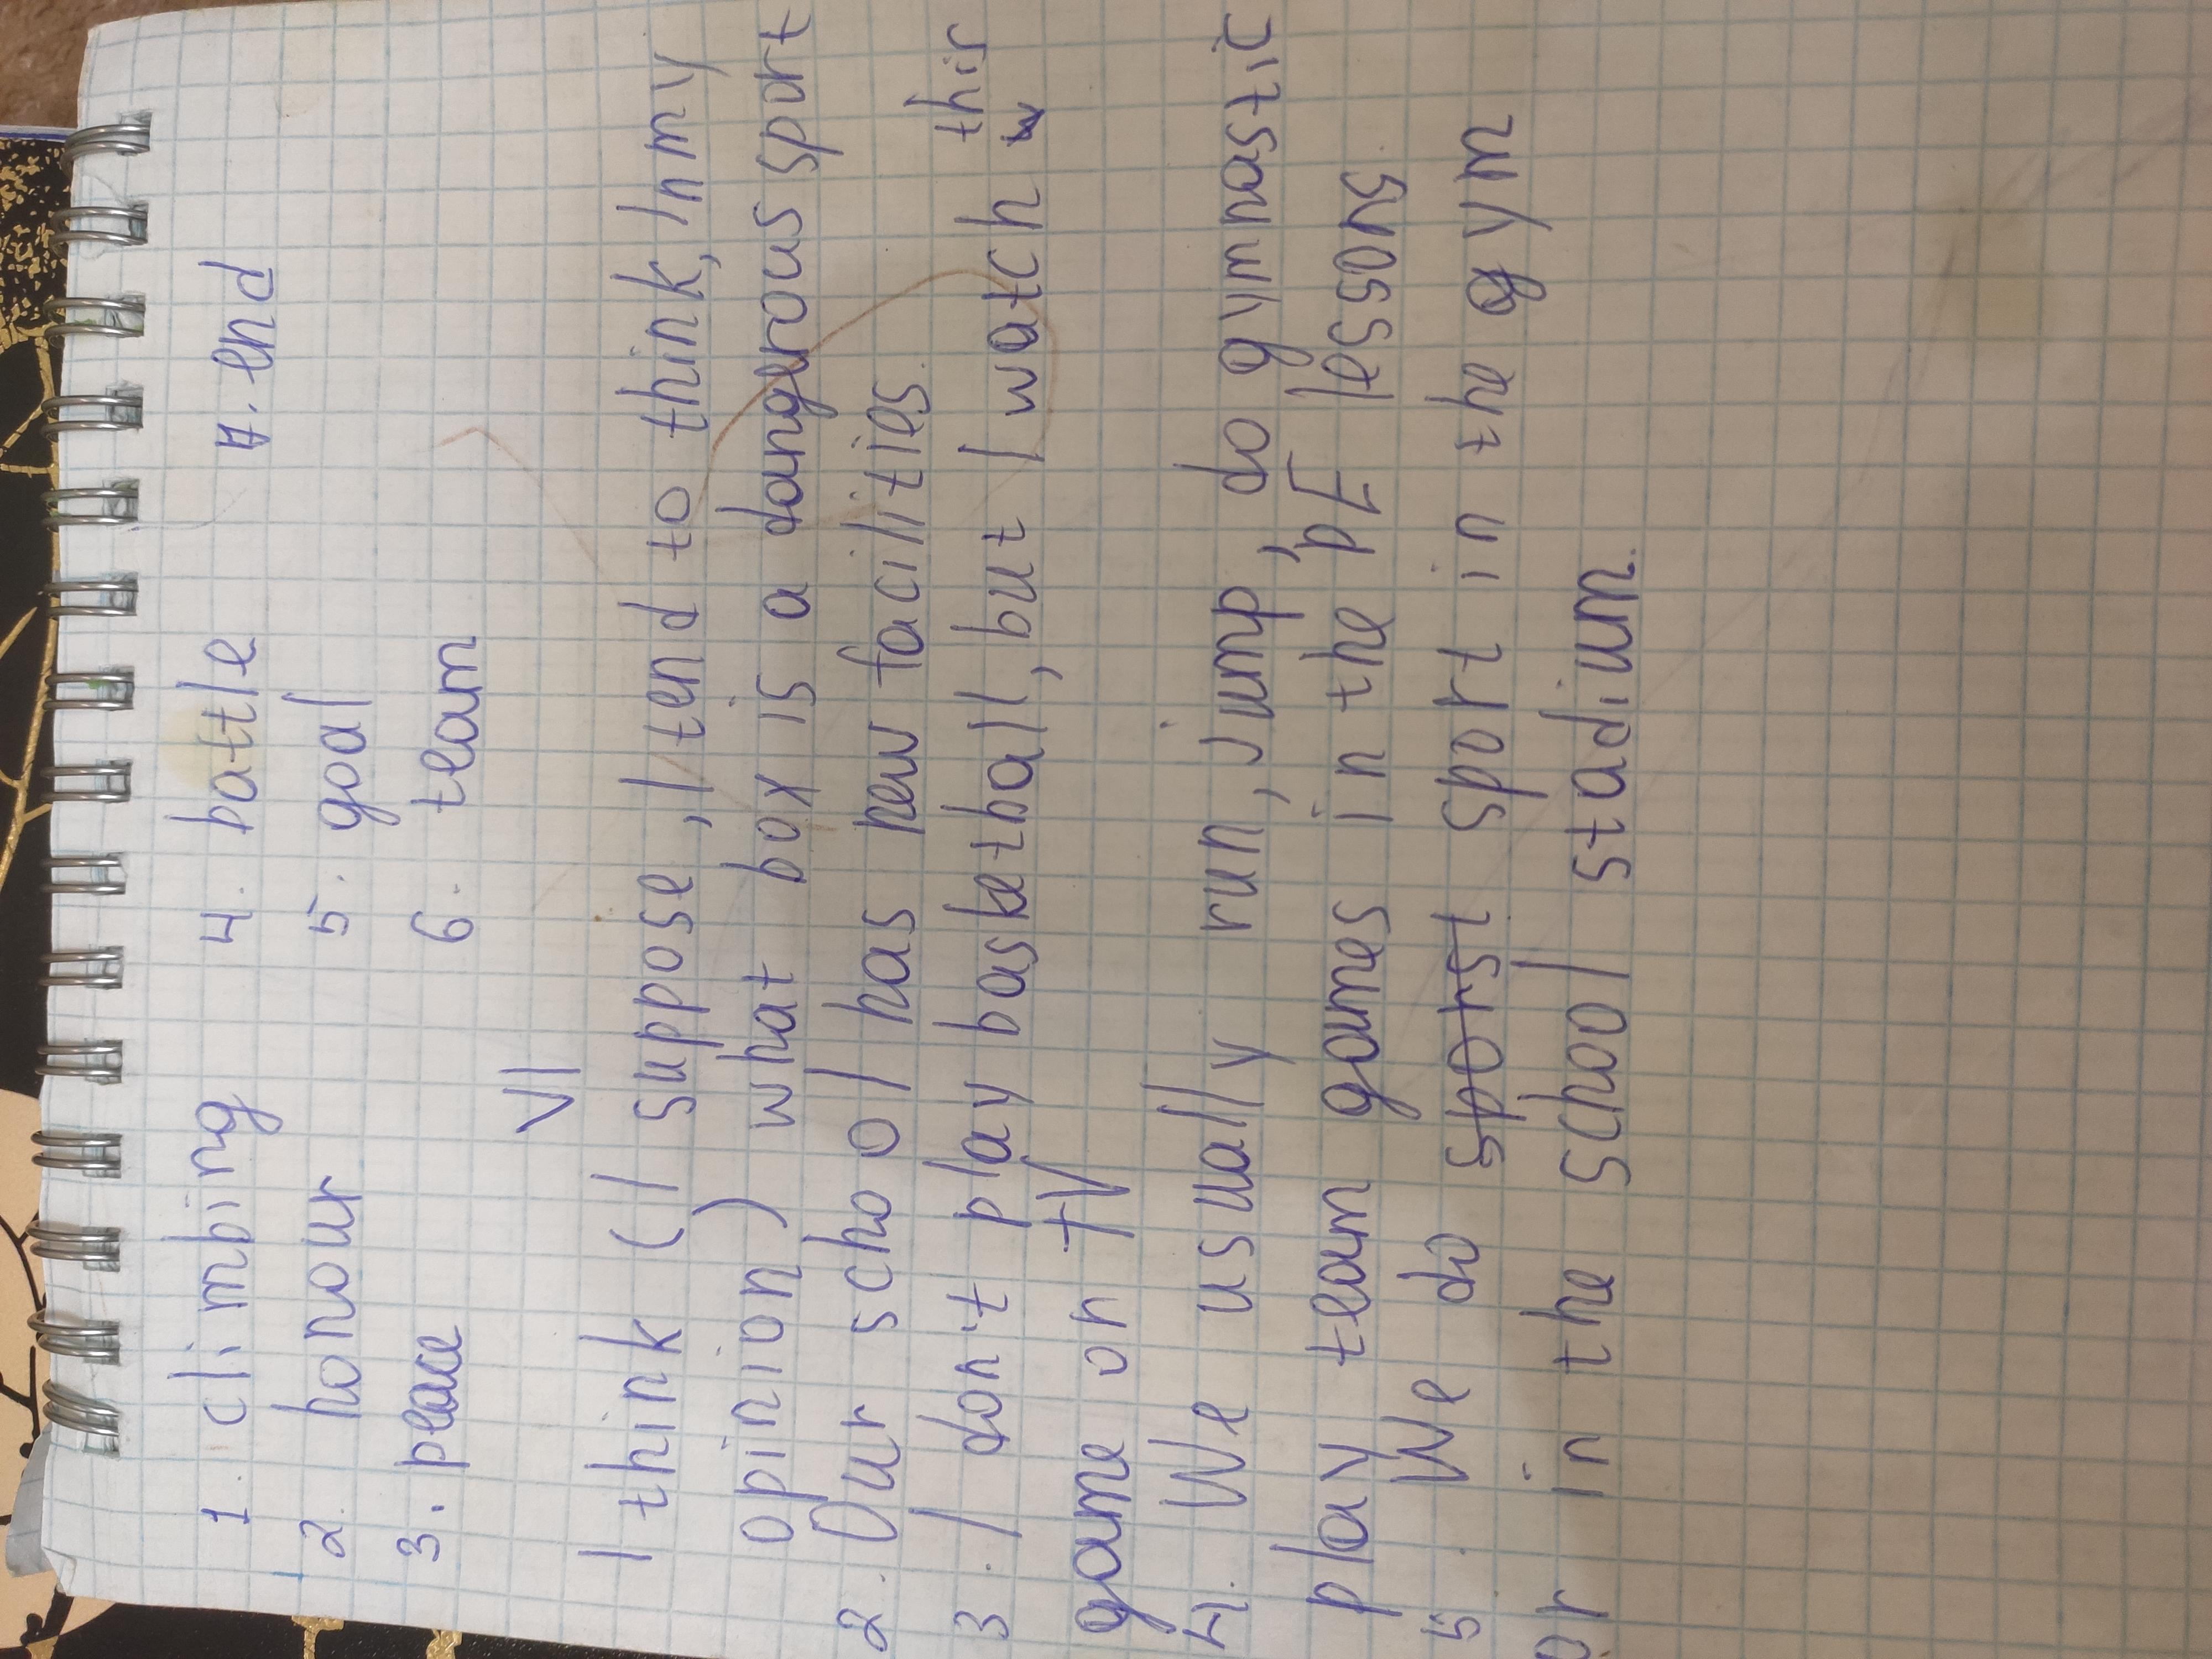 1. climbing 4. battle 7. end
2. honour 5. goal
3. peace 6. team
VI
I think (I suppose, I tend to think, In my
opinion) what box is a dangerous sport
2. Our school has new facilities.
3. I don't play basketball, but I watch this
game on TV
4. We usually run, jump, do gymnastic
play team games in the PE lessons
5. We do sporst sport in the gym
or in the school stadium.